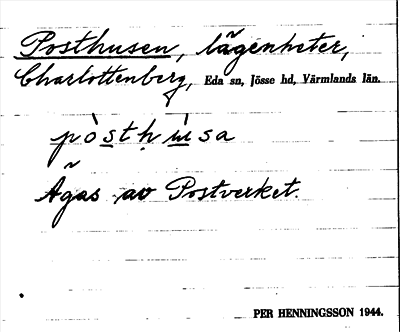 Posthusen, lägenheter,
Charlottenberg, Eda sn, Jösse hd, Värmlands län.
pòstḥùsa
Ägas av Postverket.
PER HENNINGSSON 1944.